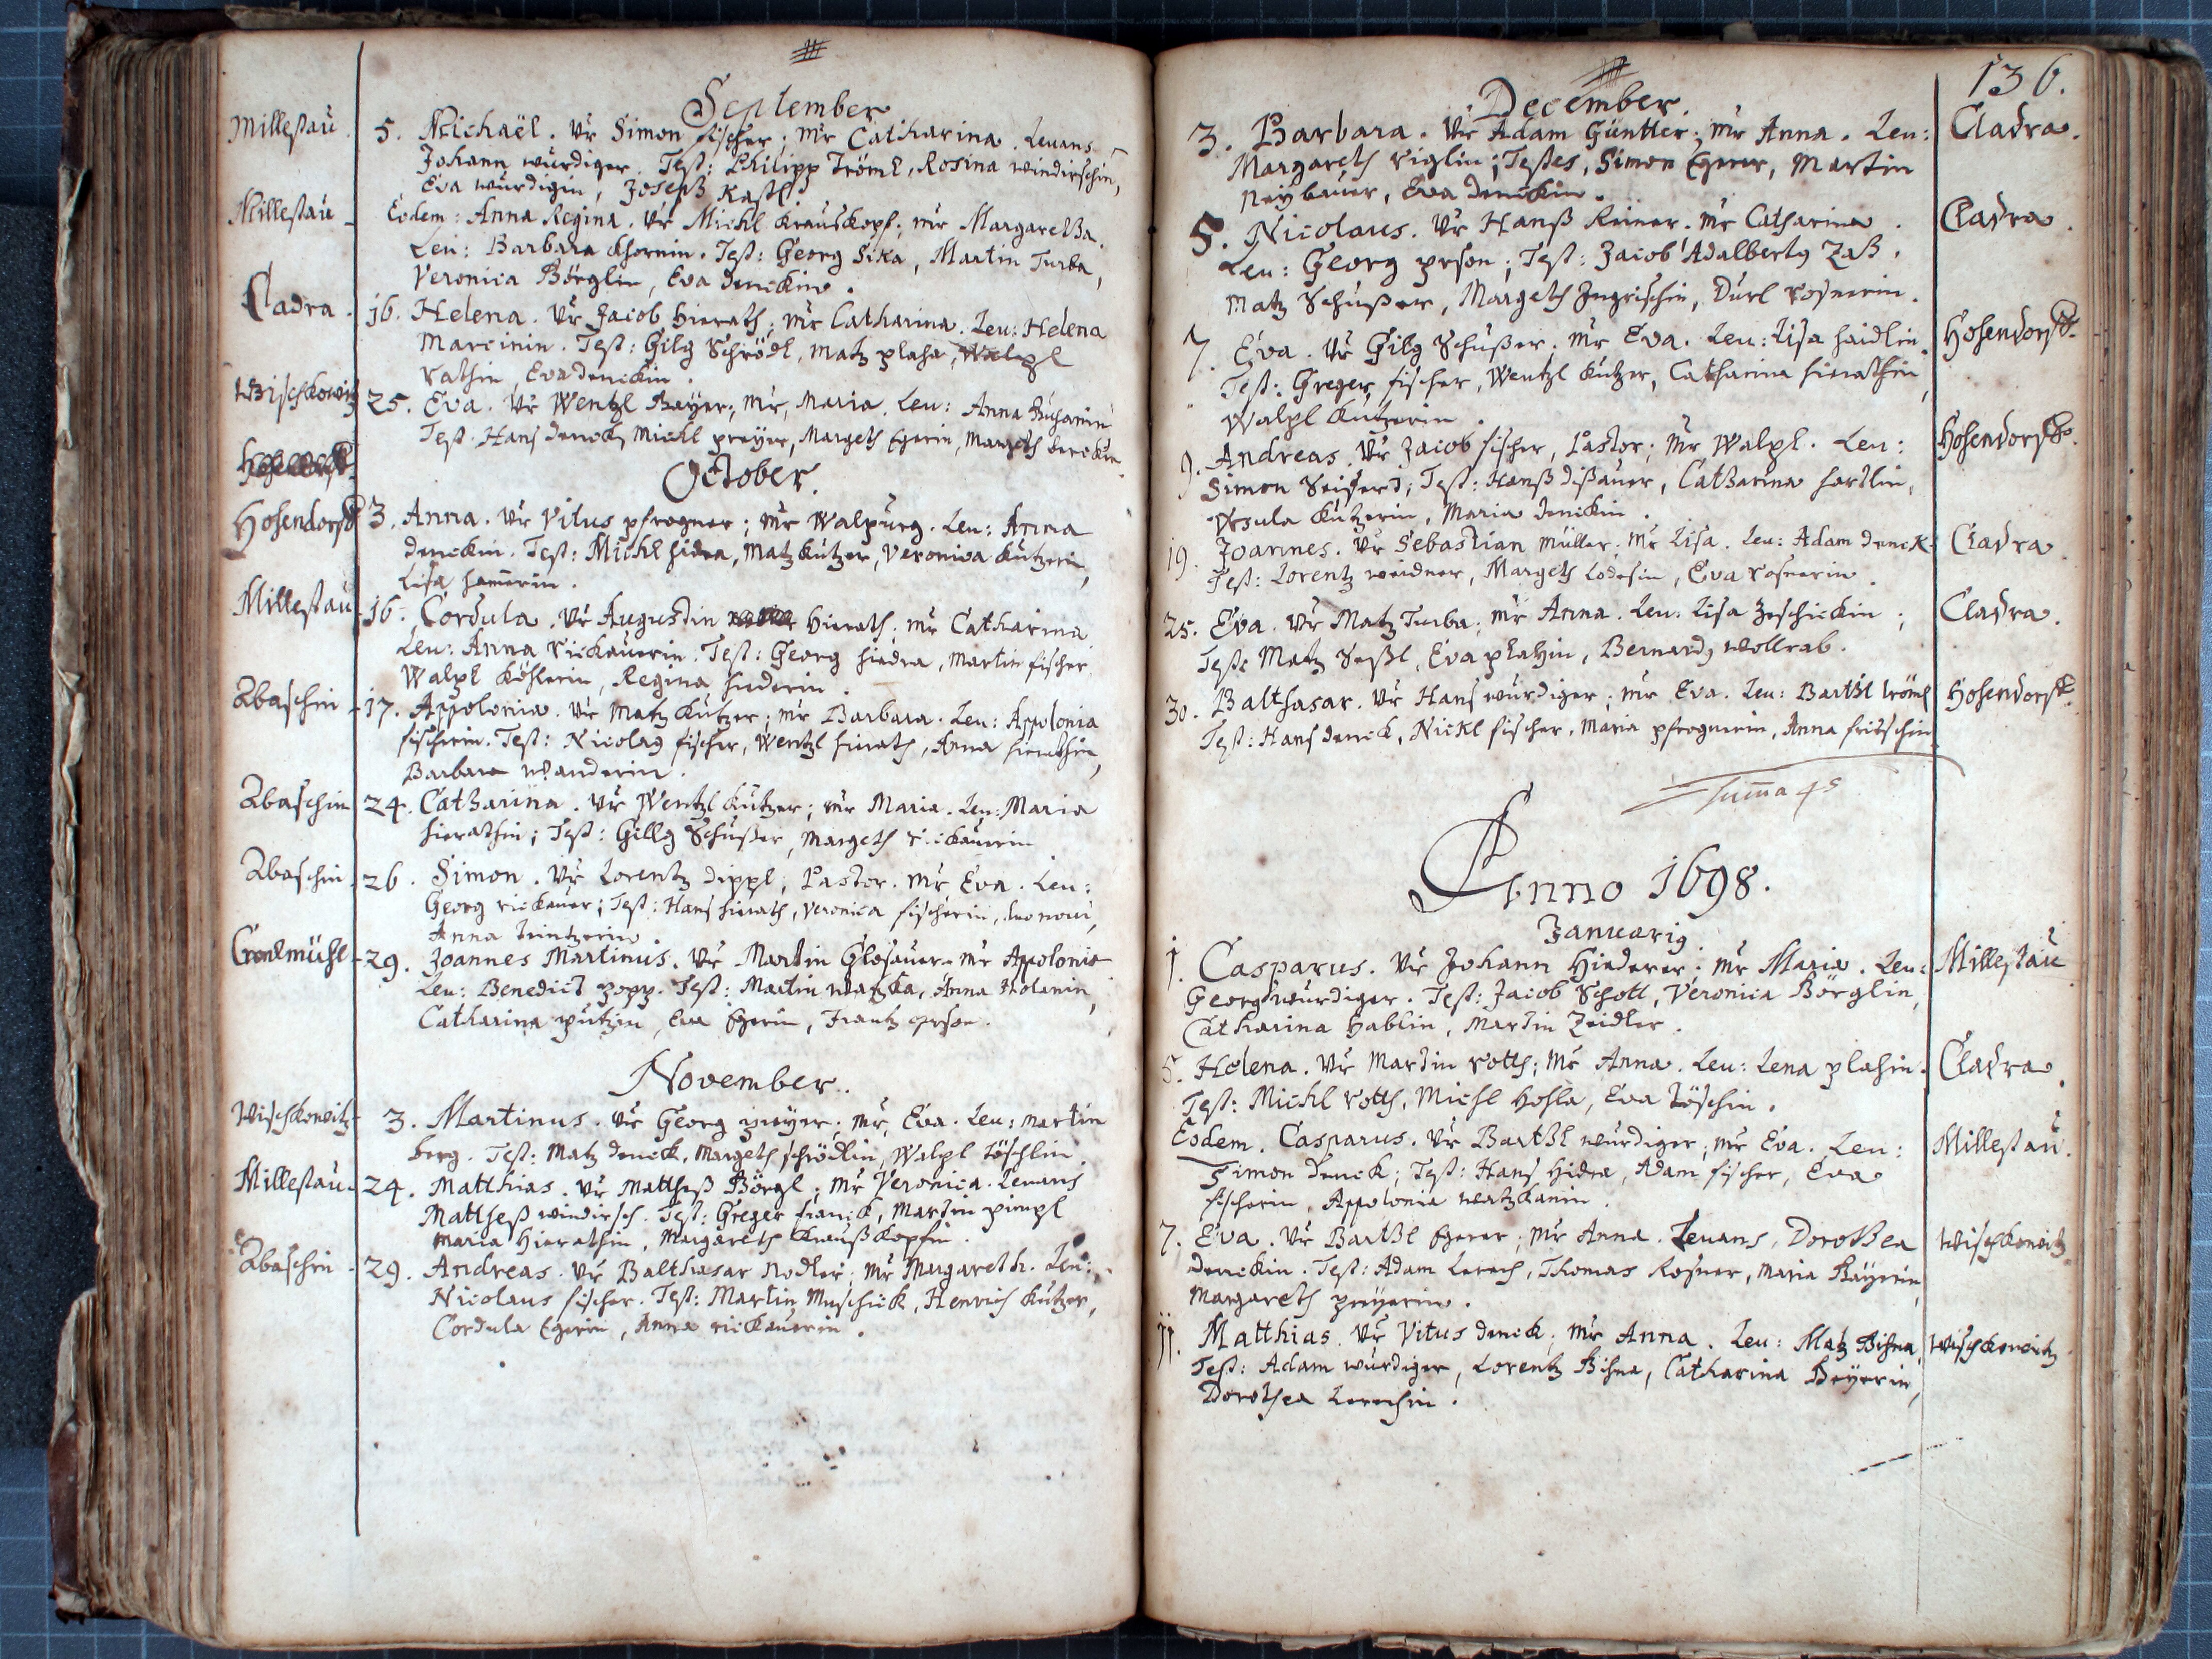 September
Millestau. 5. Michaël. Vr Simon fischer; Mr Catharina. Levans
Johann würdiger. Test: Philipp Tröml, Rosina windirschin,
Eva würdigin, Joseph Kastl.
Millestau Eodem: Anna Regina. Vr Michl Krauskopf; mr Margaretha.
Leu: Barbara Khornin. Test: Georg Sika, Martin Turba,
Veronica Börglin, Eva denckin.
Cladra. 16. Helena. Vr Jacob hierath; Mr Catharina. Leu: Helena
Marcinin. Test: Gilg Schrödl, Matz plaha, Walpl
rathin, Eva denckin.
Wischkowitz 25. Eva. Vr Wentzl Bayer; Mr, Maria. Leu: Anna
Test. Hans denck, Michl preyer, Margeth Egerin, Margeth denckin
October.
Hosendorff 3. Anna. Vr Vitus pfrogner; Mr Walpurg. Leu: Anna
denckin. Test: Michl hidra, Matz Kutzer, Veronica Kutzerin,
Lisa hamerin.
Millestau 16. Cordula. Vr Augustin Hierath; mr Catharina
Leu: Anna rickauerin. Test: Georg hiedra, Martin fischer
Walpl Köhlerin, Regina huderin.
Zbaschin 17. Appolonia. Vr Matz Kutzer; mr Barbara. Leu: Appolonia
fischerin. Test: Nicolaus fischer, Wentzl hierath, Anna hierathin,
Barbara Wanderin.
Zbaschin 24. Catharina. Vr Wentzl Kutzer; mr Maria. Leu: Maria
hierathin; Test: Gillg Schußer, Margeth rickauerin
Zbaschin. 26. Simon. Vr Lorentz dippl, Pastor. Mr Eva. Leu:
Georg rickauer; Test: Hans hierath, Veronica fischerin,
Anna
29. Joannes Martinus. Vr Martin Glosauer. mr Appolonia
Leu: Benedict popp. Test: Martin watzka, Anna
Catharina Eva Egerin, Frantz
November.
Wischkowitz 3. Martinus. Vr Georg preyer; Mr, Eva. Leu: Martin
berg. Test: Matz denck, Margeth schrödlin, Walpl töschlin
Millestau. 24. Matthias. Vr Mattheß Börgl; Mr Veronica. Levans
Mattheß windirsch. Test: Greger franck, Martin pimpl
Maria Hierathin, Margareth Kraußkopfin.
Zbaschin 29. Andreas. Vr Balthasar Nodler; Mr Margareth. Leu:
Nicolaus fischer. Test: Martin Muschick, Henrich Kutzer,
Cordula Egerin, Anna rickauerin.
136.
December.
3. Barbara. Vr Adam Güntter; mr Anna. Leu: Cladra.
Margareth riglin; Testes, Simon Egerer, Martin
Neybauer, Eva denckin.
5. Nicolaus. Vr Hanß Reiner. mr Catharina. Cladra.
Leu: Georg Test: Jacob Adalbertus Zaß.
Matz Schußer, Margeth Durl rosnerin.
7. Eva. Vr Gilg Schußer. Mr Eva. Leu: Lisa haidlin. Hosendorff.
Test: Greger fischer, Wentzl Kutzer, Catharina hierathin,
Walpl Kutzerin.
9. Andreas. Vr Jacob fischer, Pastor; Mr Walpl. Leu: Hosendorff.
Simon Test: Hanß dißauer, Catharina hartlin,
Ursula Kutzerin, Maria denckin.
19. Joannes. Vr Sebastian Müller; Mr Lisa. Leu: Adam denck. Cladra.
Test: Lorentz weidner, Margeth Lodesin, Eva rosnerin.
25. Eva. Vr Matz Turba; mr Anna. Leu: Lisa Zeschickin; Cladra.
Test: Matz Eva plahin, Bernardus wollrab.
30. Balthasar. Vr Hans würdiger; Mr Eva. Leu: Barthl Tröml Hosendorff.
Test: Hans denck, Nickl fischer, Maria pfrognerin, Anna fritschin
Suma 45
Anno 1698.
Januarius.
1. Casparus. Vr Johann Hiederer; Mr Maria. Leu: Millestau
Georg würdiger. Test: Jacob Schott, Veronica Börglin,
Catharina Hablin, Martin Zeidler.
5. Helena. Vr Martin rotth; Mr Anna. Leu: Lena plahin. Cladra.
Test: Michl rotth, Michl Hohla, Eva töschin.
Eodem. Casparus. Vr Barthl würdiger; mr Eva. Leu: Millestau.
Simon denck; Test: Hans Hidra, Adam fischer, Eva
fischerin, Appolonia watzkanin.
7. Eva. Vr Barthl Egerer; mr Anna. Levans, Dorothea Wischkowitz
denckin. Test: Adam Lerch, Thomas Rosner, Maria Bayrin,
Margareth preyerin.
11. Matthias. Vr Vitus denck; Mr Anna. Leu: Matz Bihna Wischkowitz
Test: Adam würdiger, Lorentz Bihna, Catharina Beyerin,
Dorothea Lerchin.